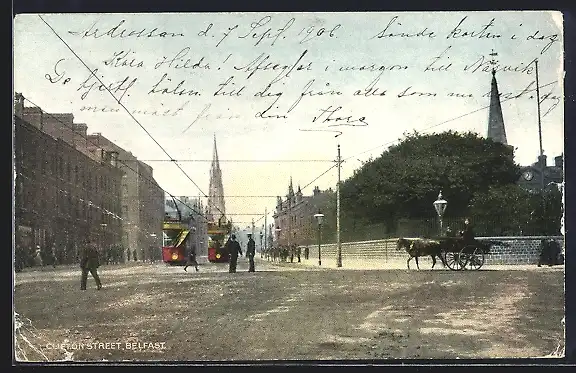 Ardrossan d. 7 Sept. 1906. Sände korten i dag
Kära Hilda! Afseglar i morgon till Narvik
De bjuth. hälsn till dig från alla som nu
min mäst från din Thora
CLIFTON STREET, BELFAST.